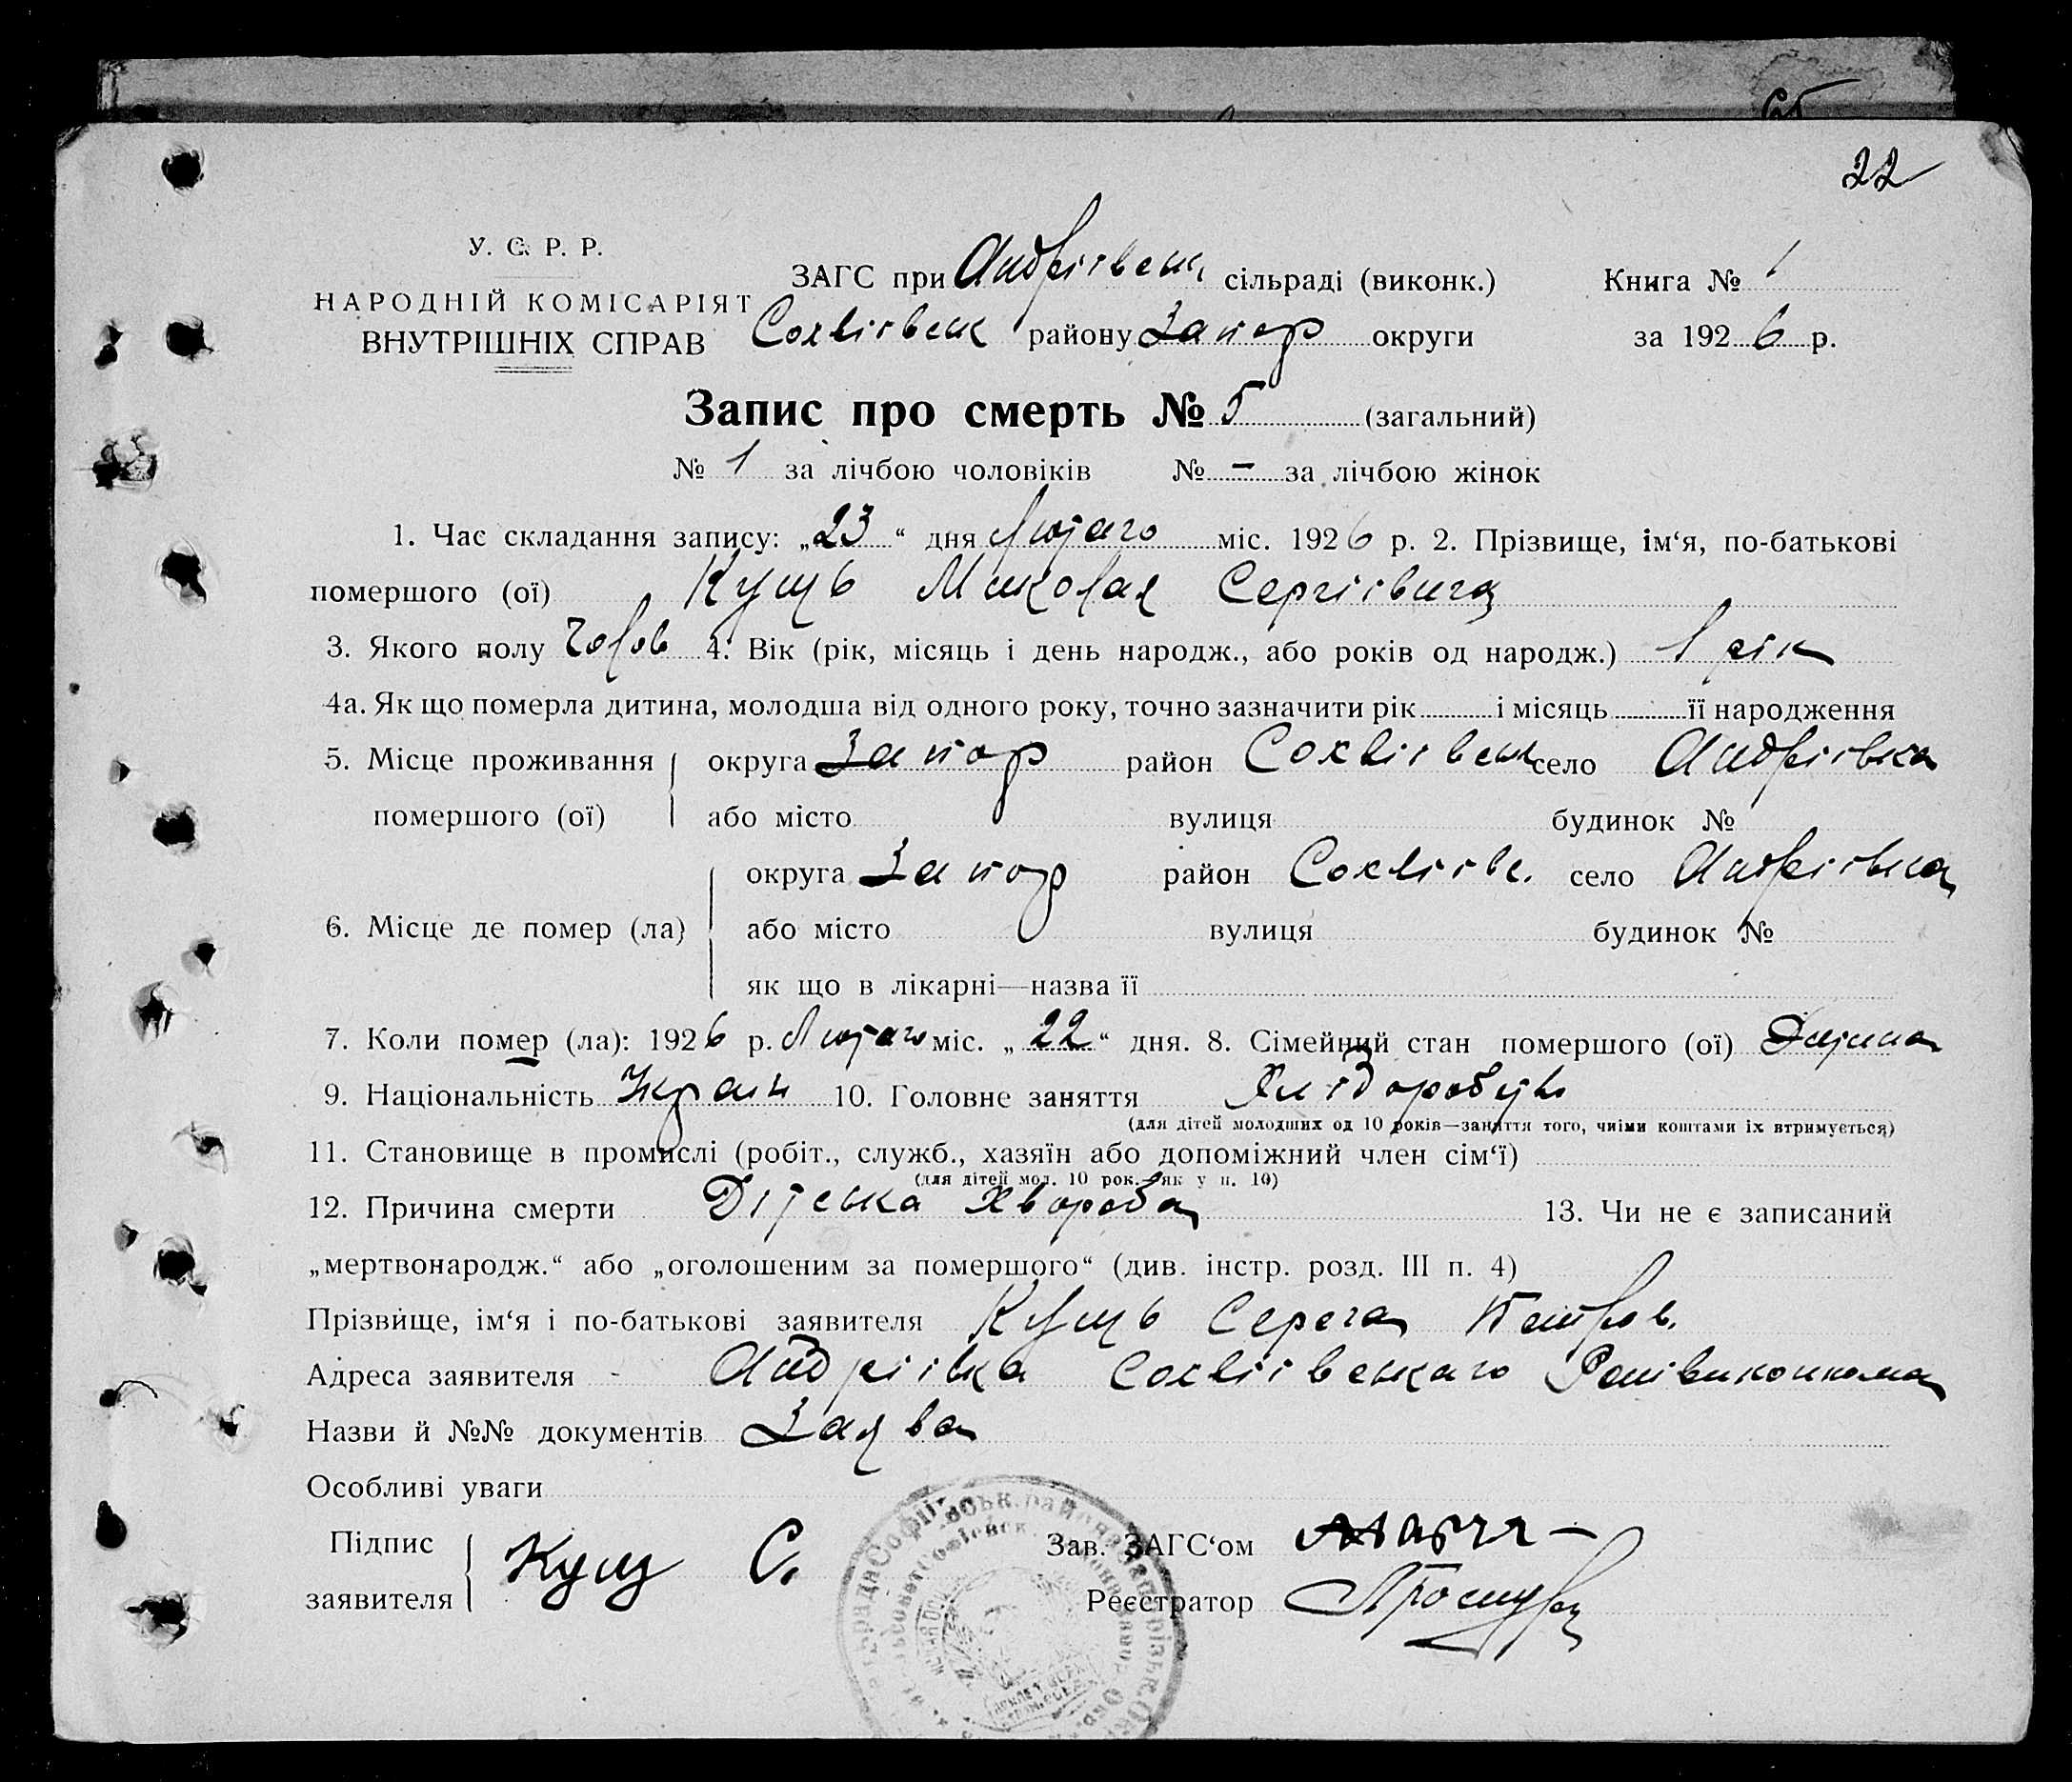 22
У. С. Р. Р.
НАРОДНІЙ КОМІСАРІЯТ
ВНУТРІШНІХ СПРАВ
ЗАГС при Андріівськ сільраді (виконк.) Книга № 1
Сохвіівськ району Запор округи за 1926 р.
Запис про смерть № 5 (загальний)
№ 1 за лічбою чоловіків № - за лічбою жінок
1. Час складання запису: „23“ дня Лютаго міс. 1926 р. 2. Прізвище, ім‘я, по-батькові
помершого (ої) Кущь Миколая Сергіівича
3. Якого полу Чолов 4. Вік (рік, місяць і день народж., або років од народж.) 1 рік
4а. Як що померла дитина, молодша від одного року, точно зазначити рік і місяць її народження
5. Місце проживання округа Запор район Сохвіівськ село Андріівка
помершого (ої) або місто вулиця будинок №
округа Запор район Сохвіів. село Андріівка
6. Місце де помер (ла) або місто вулиця будинок №
як що в лікарні—назва її
7. Коли помер (ла): 1926 р. Лютаго міс. „22“ дня. 8. Сімейний стан помершого (ої) Дитина
9. Національність Україн 10. Головне заняття Хлідоробить
(для дітей молодших од 10 років—заняття того, чиїми коштами їх втримується)
11. Становище в промислі (робіт., служб., хазяїн або допоміжний член сім‘ї)
(для дітей мол. 10 рок.—як у п. 10)
12. Причина смерти Дітська хвороба 13. Чи не є записаний
„мертвонародж.“ або „оголошеним за помершого“ (див. інстр. розд. III п. 4)
Прізвище, ім‘я і по-батькові заявителя Кущь Серега Петров.
Адреса заявителя - Андріівка Сохвіівськаго Раивиконкома
Назви й №№ документів Заява
Особливі уваги
Підпис заявителя Кущ С.
Зав. ЗАГС‘ом
Реєстратор